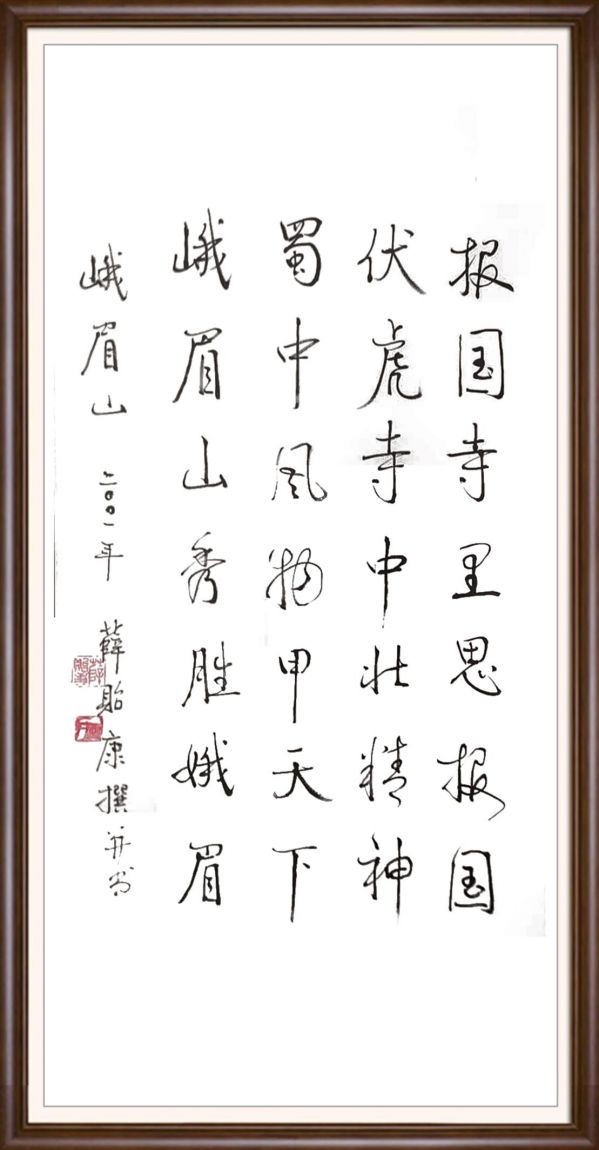 报国寺里思报国
伏虎寺中壮精神
蜀中风物甲天下
峨眉山秀胜娥眉
峨眉山 二〇〇一年 薛贻康撰并书